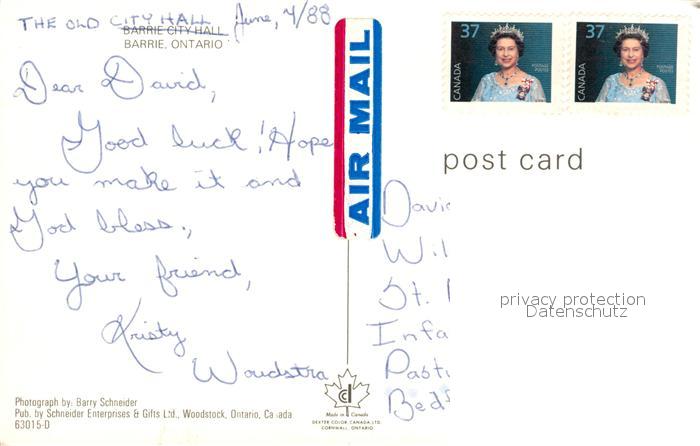 THE OLD CITY HALL June, 4/88
BARRIE CITY HALL
BARRIE, ONTARIO
Dear David,
Good luck! Hope
you make it and
God bless.,
Your friend,
Kristy
Woudstra
Photograph by: Barry Schneider
Pub. by Schneider Enterprises & Gifts Ltd., Woodstock, Ontario, Canada
63015-D
AIR MAIL
Made in Canada
DEXTER COLOR CANADA LTD.
CORNWALL, ONTARIO
37
CANADA
POSTAGE
POSTES
37
CANADA
POSTAGE
POSTES
post card
Davi
Wil
St.
Infa
Pasti
Beds
privacy protection
Datenschutz